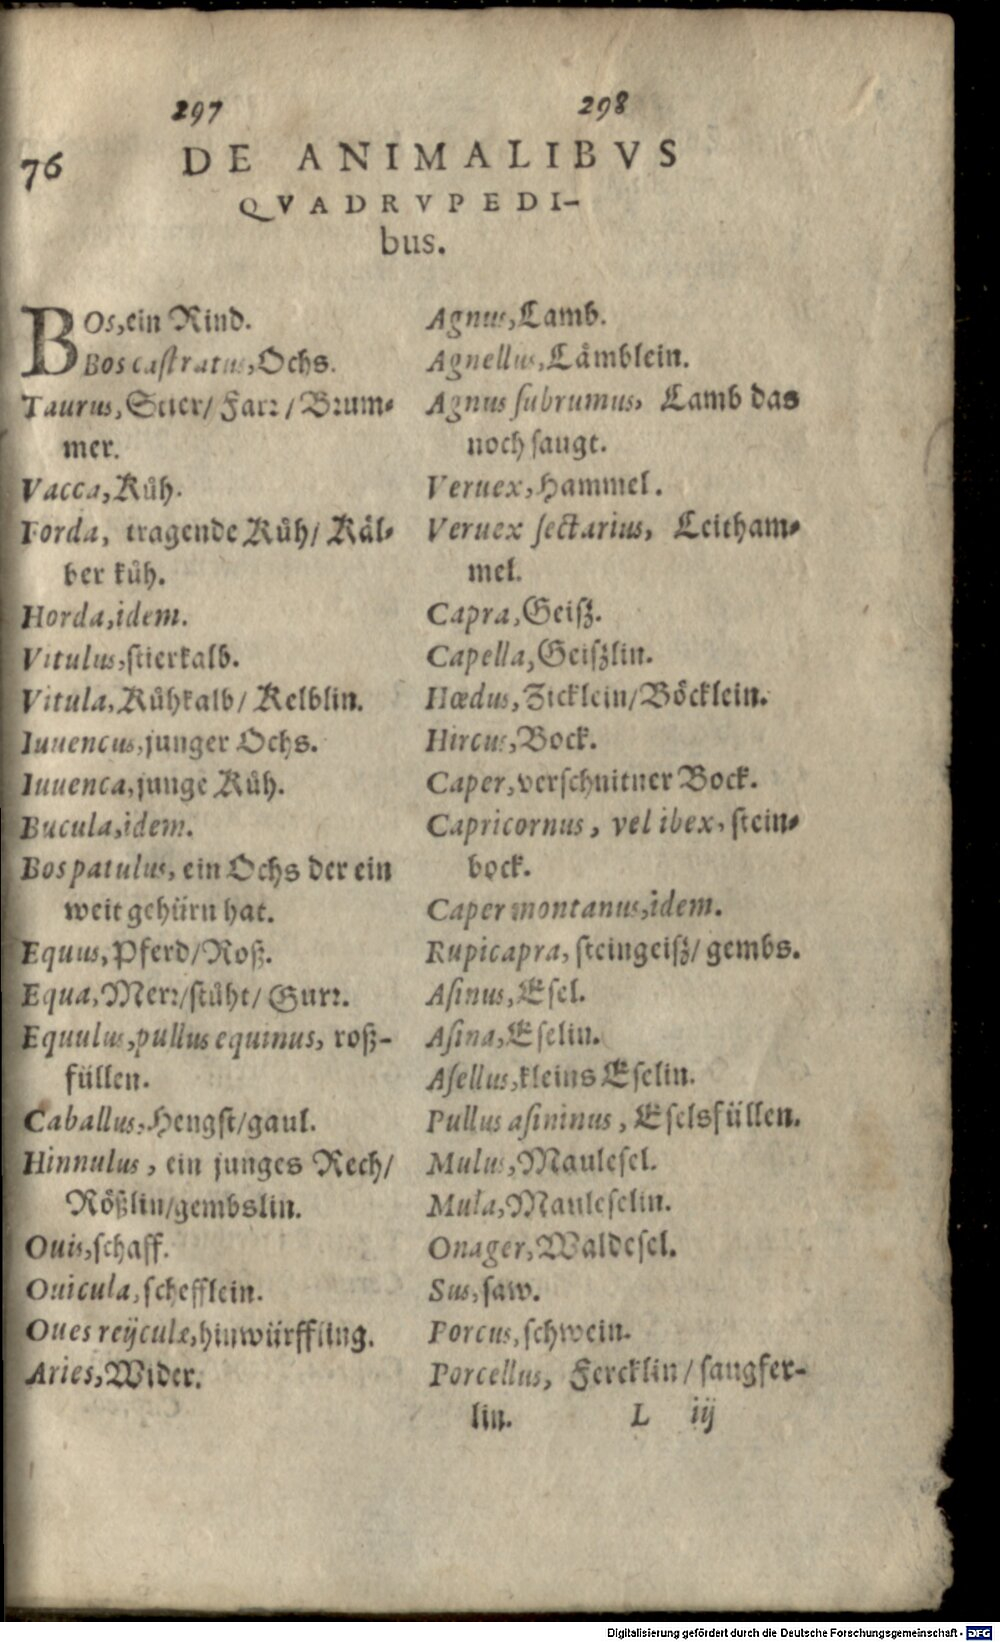 297 298
76 DE ANIMALIBVS
QVADRVPEDI-
bus.
BOs, ein Rind.
Bos castratus, Ochs.
Taurus, Stier/ Farr/ Brum-
mer.
Vacca, Kůh.
Forda, tragende Kůh/ Käl-
ber kůh.
Horda, idem.
Vitulus, stierkalb.
Vitula, Kůhkalb/ Kelblin.
Iuuencus, junger Ochs.
Iuuenca, junge Kůh.
Bucula, idem.
Bos patulus, ein Ochs der ein
weit gehürn hat.
Equus, Pferd/Roß.
Equa, Merr/stůht/ Gurr.
Equulus, pullus equinus, roß-
füllen.
Caballus, Hengst/gaul.
Hinnulus, ein junges Rech/
Rößlin/gembslin.
Ouis, schaff.
Ouicula, schefflein.
Oues reijculæ, hinwürffling.
Aries, Wider.
Agnus, Lamb.
Agnellus, Lämblein.
Agnus subrumus, Lamb das
noch saugt.
Veruex, Hammel.
Veruex sectarius, Leitham-
mel.
Capra, Geisz.
Capella, Geiszlin.
Hœdus, Zicklein/Böcklein.
Hircus, Bock.
Caper, verschnitner Bock.
Capricornus, vel ibex, stein-
bock.
Caper montanus, idem.
Rupicapra, steingeisz/ gembs.
Asinus, Esel.
Asina, Eselin.
Asellus, kleins Eselin.
Pullus asininus, Eselsfüllen.
Mulus, Maulesel.
Mula, Mauleselin.
Onager, Waldesel.
Sus, saw.
Porcus, schwein.
Porcellus, Fercklin/ saugfer-
lin. L iij
Digitalisierung gefördert durch die Deutsche Forschungsgemeinschaft - DFG